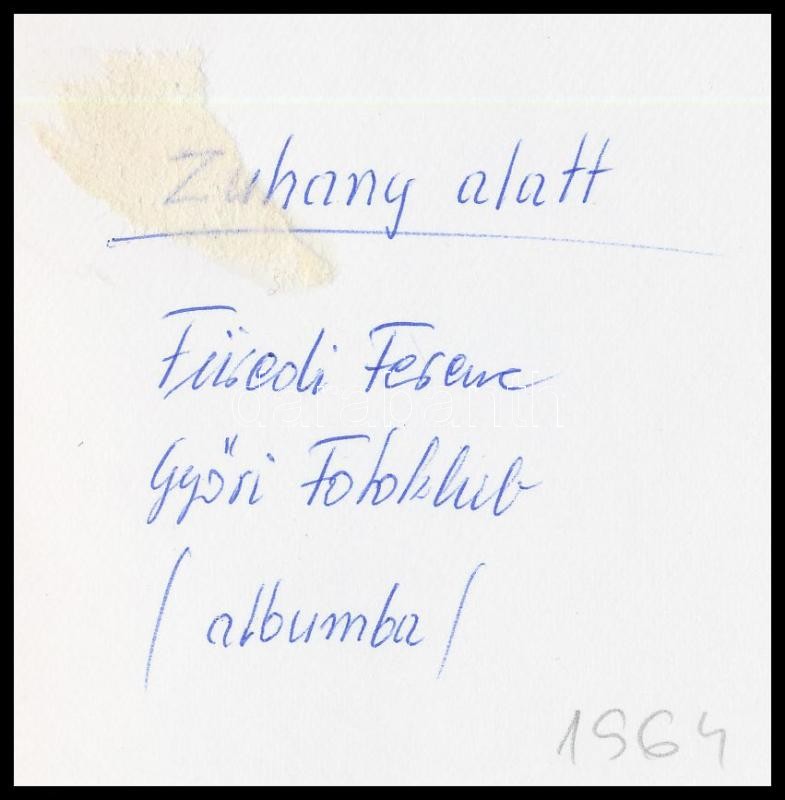 Zuhany alatt
Füredi Ferenc
darabanth
Győri Fotoklub
/ albumba /
1964